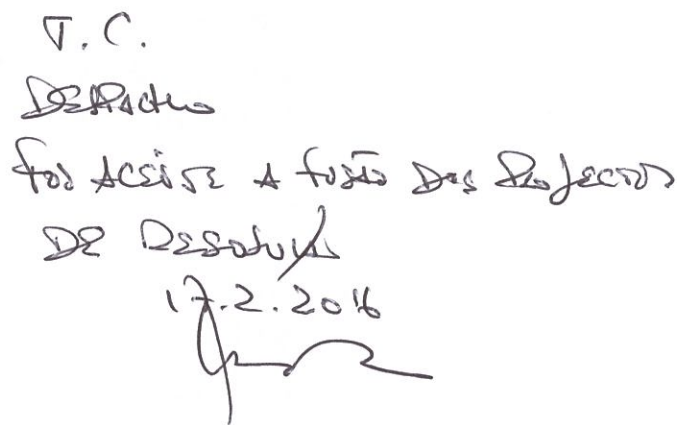 T. C.
DESPACHO
Foi ACEITE A FUSÃO DOS PROJECTOS
DE RESOLUÇÃO
17.2.2016